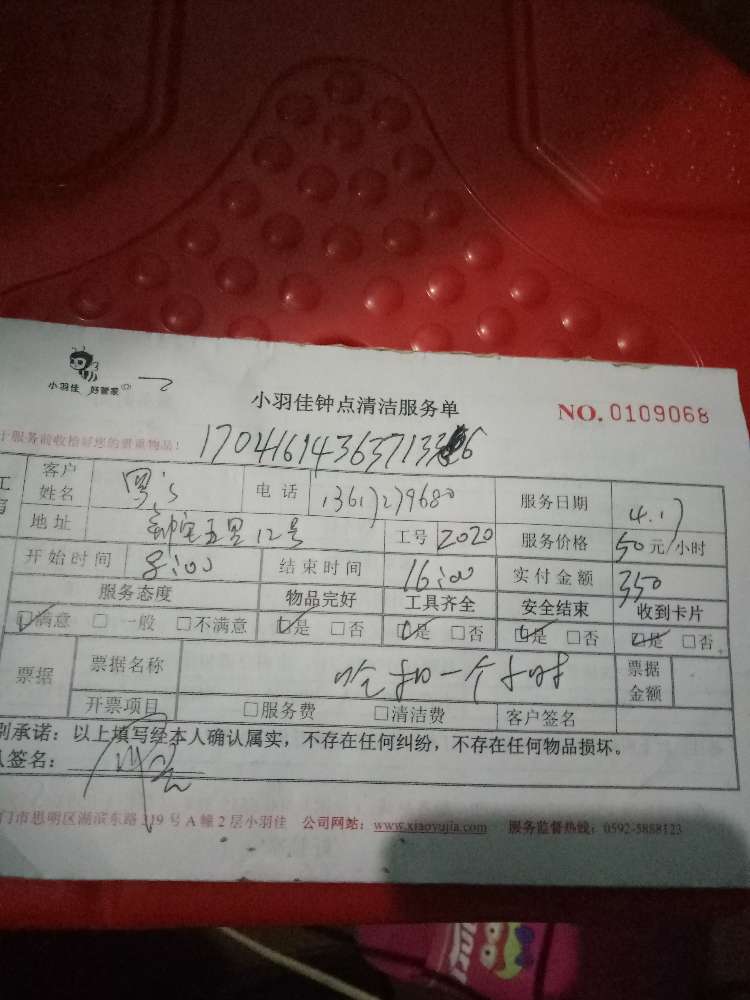 小羽佳 好管家
小羽佳钟点清洁服务单
NO. 0109068
服务前收拾好您的贵重物品!
客户姓名 电话 服务日期 4.17
地址 五里12号 工号 2020 服务价格 50 元/小时
开始时间 8:00 结束时间 16:00 实付金额 350
服务态度 物品完好 工具齐全 安全结束 收到卡片
☑满意 □一般 □不满意 ☑是 □否 ☑是 □否 ☑是 □否 ☑是 □否
票据 票据名称 吃扣一个小时 票据金额
开票项目 □服务费 □清洁费 客户签名
别承诺：以上填写经本人确认属实，不存在任何纠纷，不存在任何物品损坏。
人签名：
门市思明区湖滨东路319号A幢2层小羽佳 公司网站：www.xiaoyujia.com 服务监督热线：0592-5888123